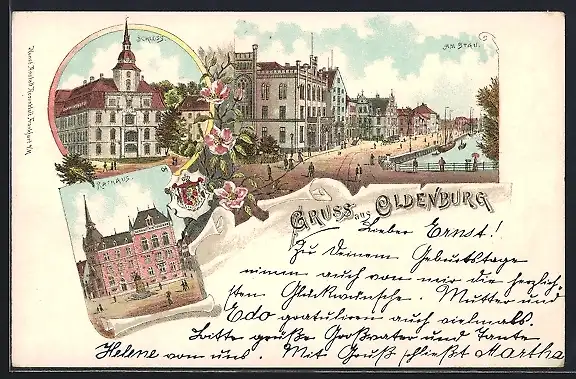 SCHLOSS.
AM STAU.
RATHAUS.
GRUSS aus OLDENBURG
Lieber Ernst!
Zu Deinem Geburtstage
nimm auch von mir die herzlich-
sten Glückwünsche. Mutter und
Edo gratuliren auch vielmals.
Bitte grüße Großvater und Tante
Helene von uns. Mit Gruß schließt Martha